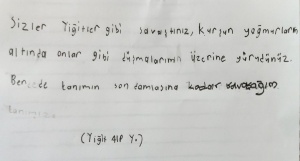 Sizler Yiğitler gibi savaştınız, kurşun yağmurların
altında onlar gibi düşmalarımın üzerine yürüdünüz.
Ben de kanımın son damlasına kadar savaşağım
(Yiğit Alp Y.)